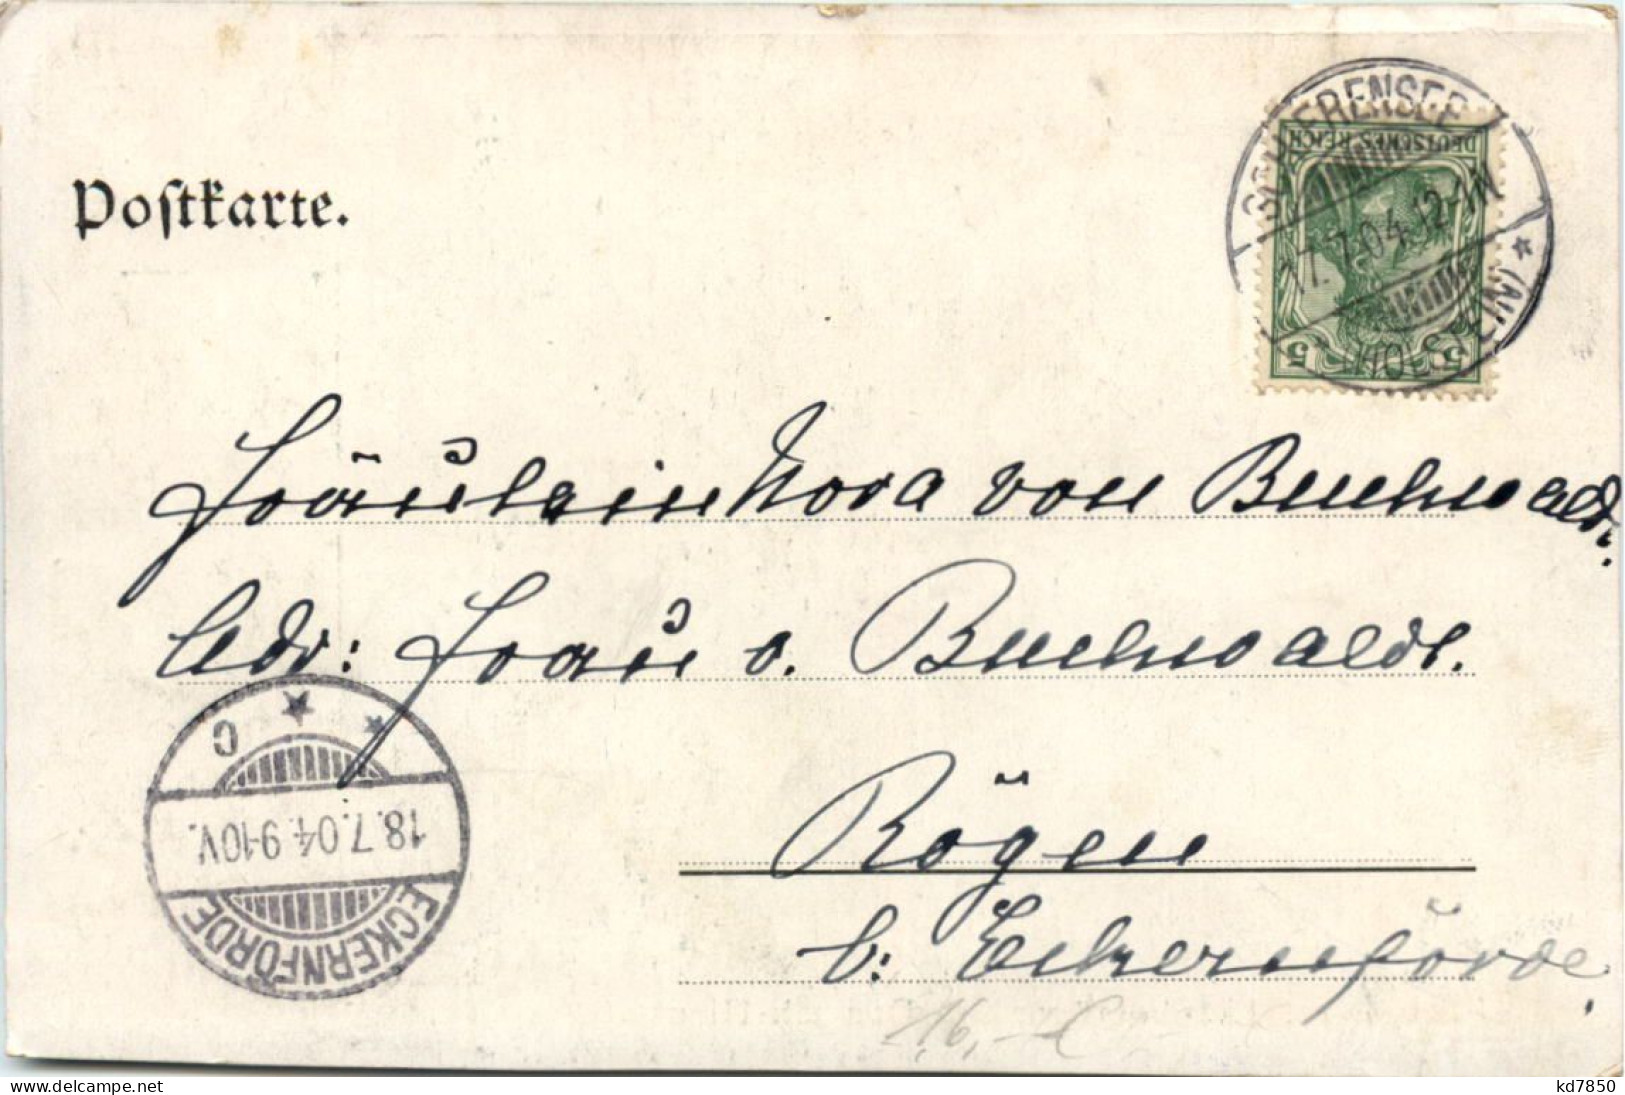 Postkarte.
SCHIERENSEE
DEUTSCHES REICH
17.7.04.12-1N
(HOLSTEIN)
5 5
Fräulein Nora von Buchwaldt.
Adr: Frau v. Buchwaldt.
C
18.7.04.9-10V.
ECKERNFÖRDE
Rögen
b: Eckernförde,
16,-
www.delcampe.net
kd7850